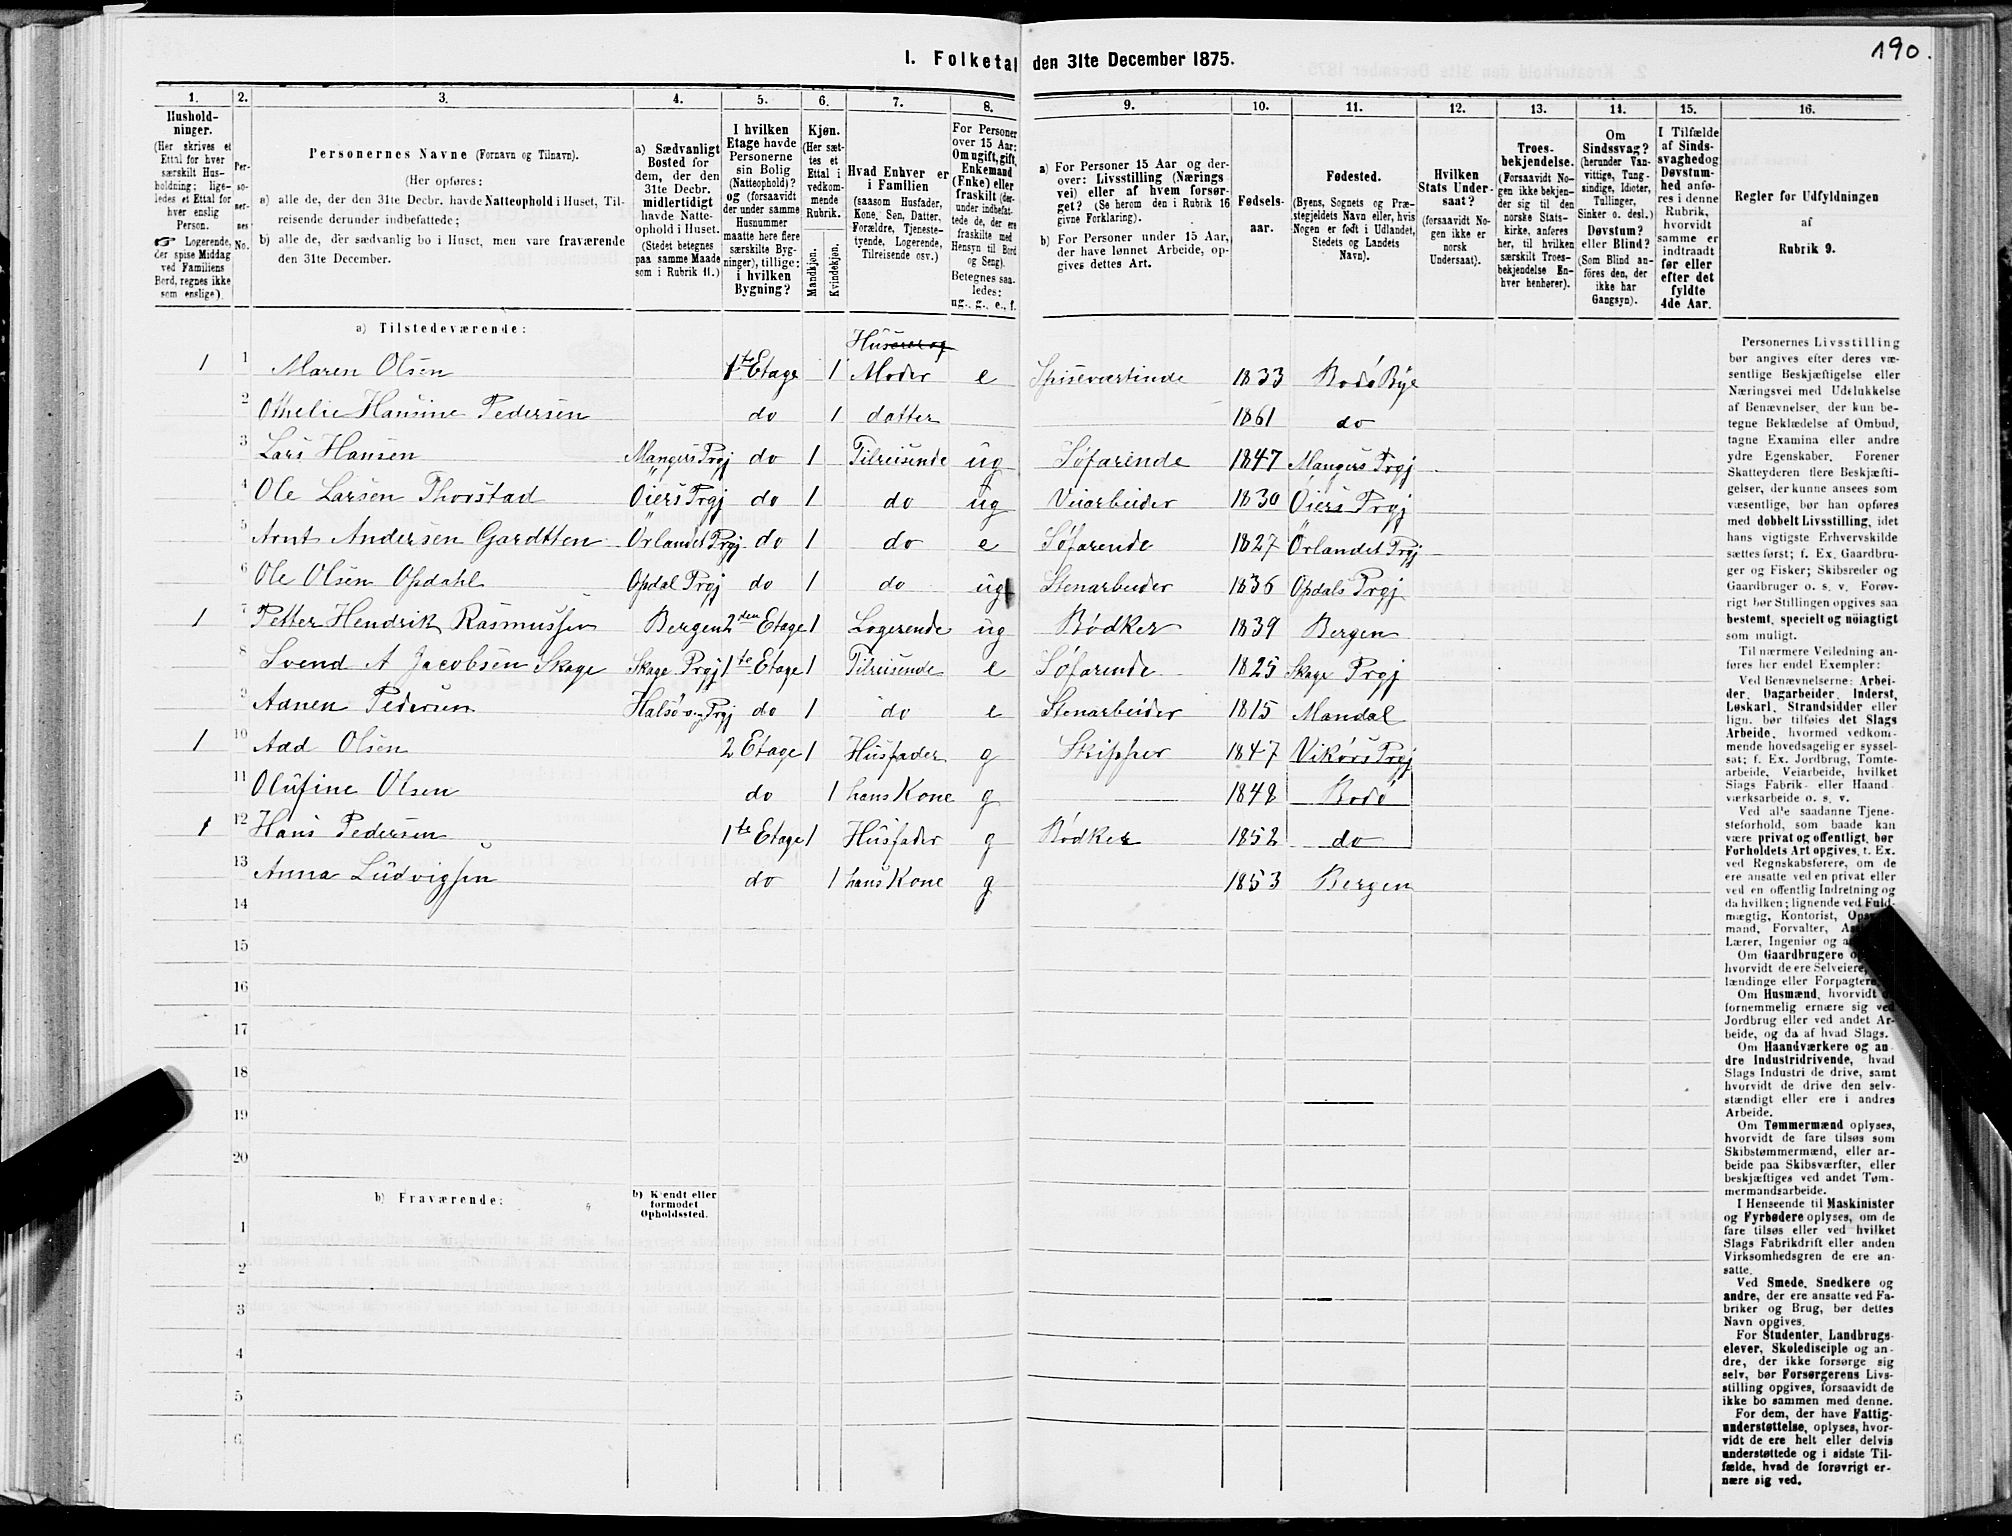 190.
I. Folketal den 31te December 1875.
1. 2. 3. 4. 5. 6. 7. 8. 9. 10. 11. 12. 13. 14. 15. 16.
Husholdninger.
(Her skrives et
Ettal for hver
særskilt Hus-
holdning; lige-
ledes et Ettal for
hver enslig
Person.
☞ Logerende,
der spise Middag
ved Familiens
Bord, regnes ikke
som enslige).
Per-
so-
ner-
nes
No.
Personernes Navne (Fornavn og Tilnavn).
(Her opføres:
a) alle de, der den 31te Decbr. havde Natteophold i Huset, Til-
reisende derunder indbefattede;
b) alle de, der sædvanlig bo i Huset, men vare fraværende
den 31te December.
a) Sædvanligt
Bosted for
dem, der den
31te Decbr.
midlertidigt
havde Natte-
ophold i Huset.
(Stedet betegnes
paa samme Maade
som i Rubrik 11.)
I hvilken
Etage havde
Personerne
sin Bolig
(Natteophold)?
og (forsaavidt
der under samme
Husnummer
maatte høre flere
særskilte Byg-
ninger), tillige:
i hvilken
Bygning?
Kjøn.
(Her sæt-
tes et
Ettal i
vedkom-
mende
Rubrik.
Mandkjøn.
Kvindekjøn.
Hvad Enhver er
i Familien
(saasom Husfader,
Kone, Søn, Datter,
Forældre, Tjeneste-
tyende, Logerende,
Tilreisende osv.)
For Personer
over 15 Aar:
Om ugift, gift,
Enkemand
(Enke) eller
fraskilt (der-
under indbefat-
tede de, der ere
fraskilte med
Hensyn til Bord
og Seng).
Betegnes saa-
ledes:
ug., g., e., f.
a) For Personer 15 Aar og der-
over: Livsstilling (Nærings
vei) eller af hvem forsør-
get? (Se herom den i Rubrik 16
givne Forklaring).
b) For Personer under 15 Aar,
der have lønnet Arbeide, op-
gives dettes Art.
Fødsels-
aar.
Fødested.
(Byens, Sognets og Præ-
stegjeldets Navn eller, hvis
Nogen er født i Udlandet,
Stedets og Landets
Navn).
Hvilken
Stats Under-
saat?
(forsaavidt No-
gen ikke er
norsk
Undersaat).
Troes-
bekjendelse.
(Forsaavidt No-
gen ikke bekjen-
der sig til den
norske Stats-
kirke, anføres
her, til hvilken
særskilt Troes-
bekjendelse En-
hver henhører).
Om
Sindssvag?
(herunder Van-
vittige, Tung-
sindige, Idioter,
Tullinger,
Sinker o. desl.)
Døvstum?
eller Blind?
(Som Blind an-
føres den, der
ikke har
Gangsyn).
I Tilfælde
af Sinds-
svaghed og
Døvstum-
hed anfø-
res i denne
Rubrik,
hvorvidt
samme er
indtraadt
før eller
efter det
fyldte
4de Aar.
Regler for Udfyldningen
af
Rubrik 9.
a) Tilstedeværende:
1 1 Maren Olsen 1te Etage 1 Moder e Spiseværtinde 1833 Bodö Bye
2 Othelie Hansine Pedersen do 1 datter 1861 do
3 Lars Hansen Mangers Prgj do 1 Tilreisende ug Søfarende 1847 Mangers Prgj
4 Ole Larsen Thorstad Öiers Prgj do 1 do ug Veiarbeider 1830 Öiers Prgj
5 Arnt Andersen Gardtten Örlandet Prgj do 1 do e Søfarende 1827 Örlandet Prgj
6 Ole Olsen Opdahl Opdal Prgj do 1 do ug Stenarbeider 1836 Opdals Prgj
1 7 Petter Hendrik Rasmussen Bergen 2den Etage 1 Logerende ug Bødker 1839 Bergen
8 Svend A Jacobsen Skage Skage Prgj 1te Etage 1 Tilreisende e Søfarende 1825 Skage Prgj
9 Aanen Pedersen Halsö Prgj do 1 do e Stenarbeider 1815 Mandal
1 10 Aad Olsen 2 Etage 1 Husfader g Skipper 1847 Vikörs Prgj
11 Olufine Olsen do 1 hans Kone g 1848 Bodö
1 12 Hans Pedersen 1te Etage 1 Husfader g Bødker 1852 do
13 Anna Ludvigsen do 1 hans Kone g 1853 Bergen
14
15
16
17
18
19
20
b) Fraværende:
b) Kjendt eller
formodet
Opholdssted.
1
2
3
4
5
6
Personernes Livsstilling
bør angives efter deres væ-
sentlige Beskjæftigelse eller
Næringsvei med Udelukkelse
af Benævnelser, der kun be-
tegne Beklædelse af Ombud,
tagne Examina eller andre
ydre Egenskaber. Forener
Skatteyderen flere Beskjæfti-
gelser, der kunne ansees som
væsentlige, bør han opføres
med dobbelt Livsstilling, idet
hans vigtigste Erhvervskilde
sættes først; f. Ex. Gaardbru-
ger og Fisker; Skibsreder og
Gaardbruger o. s. v. Forøv-
rigt bør Stillingen opgives saa
bestemt, specielt og nöiagtigt
som muligt.
Til nærmere Veiledning an-
føres her endel Exempler:
Ved Benævnelserne: Arbei-
der, Dagarbeider, Inderst,
Løskarl, Strandsidder eller
lign. bør tilføies det Slags
Arbeide, hvormed vedkom-
mende hovedsagelig er syssel-
sat; f. Ex. Jordbrug, Tomte-
arbeide, Veiarbeide, hvilket
Slags Fabrik- eller Haand
værksarbeide o. s. v.
Ved al'e saadanne Tjene-
steforhold, som baade kan
være privat og offentligt, bør
Forholdets Art opgives, t. Ex.
ved Regnskabsførere, om de
ere ansatte ved en privat eller
ved en offentlig Indretning og
da hvilken; lignende ved Fuld-
mægtig, Kontorist,
mand, Forvalter,
Lærer, Ingeniør og
Om Gaardbrugere
hvorvidt de ere Selveiere,
lændinge eller Forpagtere.
Om Husmænd, hvorvidt
fornemmelig ernære sig ved
Jordbrug eller ved andet Ar-
beide, og da af hvad Slags.
Om Haandværkere og an
dre Industridrivende, hvad
Slags Industri de drive, samt
hvorvidt de drive den selv-
stændigt eller ere i andres
Arbeide.
Om Tømmermænd oplyses,
hvorvidt de fare tilsøs som
Skibstømmermænd, eller ar-
beide paa Skibsværfter, eller
beskjæftiges ved andet Tøm-
mermandsarbeide.
I Henseende til Maskinister
og Fyrbødere oplyses, om de
fare tilsøs eller ved hvilket
Slags Fabrikdrift eller anden
Virksomhedsgren de ere an-
satte.
Ved Smede, Snedkere og
andre, der ere ansatte ved Fa-
briker og Brug, bør dettes
Navn opgives.
For Studenter, Landbrugs-
elever, Skoledisciple og an-
dre, der ikke forsørge sig
selv, bør Forsørgerens Livs-
stilling opgives, forsaavidt de
ikke bo sammen med denne.
For dem, der have Fattig-
understøttelse, oplyses, hvor-
vidt de ere helt eller delvis
understøttede og i sidste Til-
fælde, hvad de forøvrigt er-
nære sig ved.